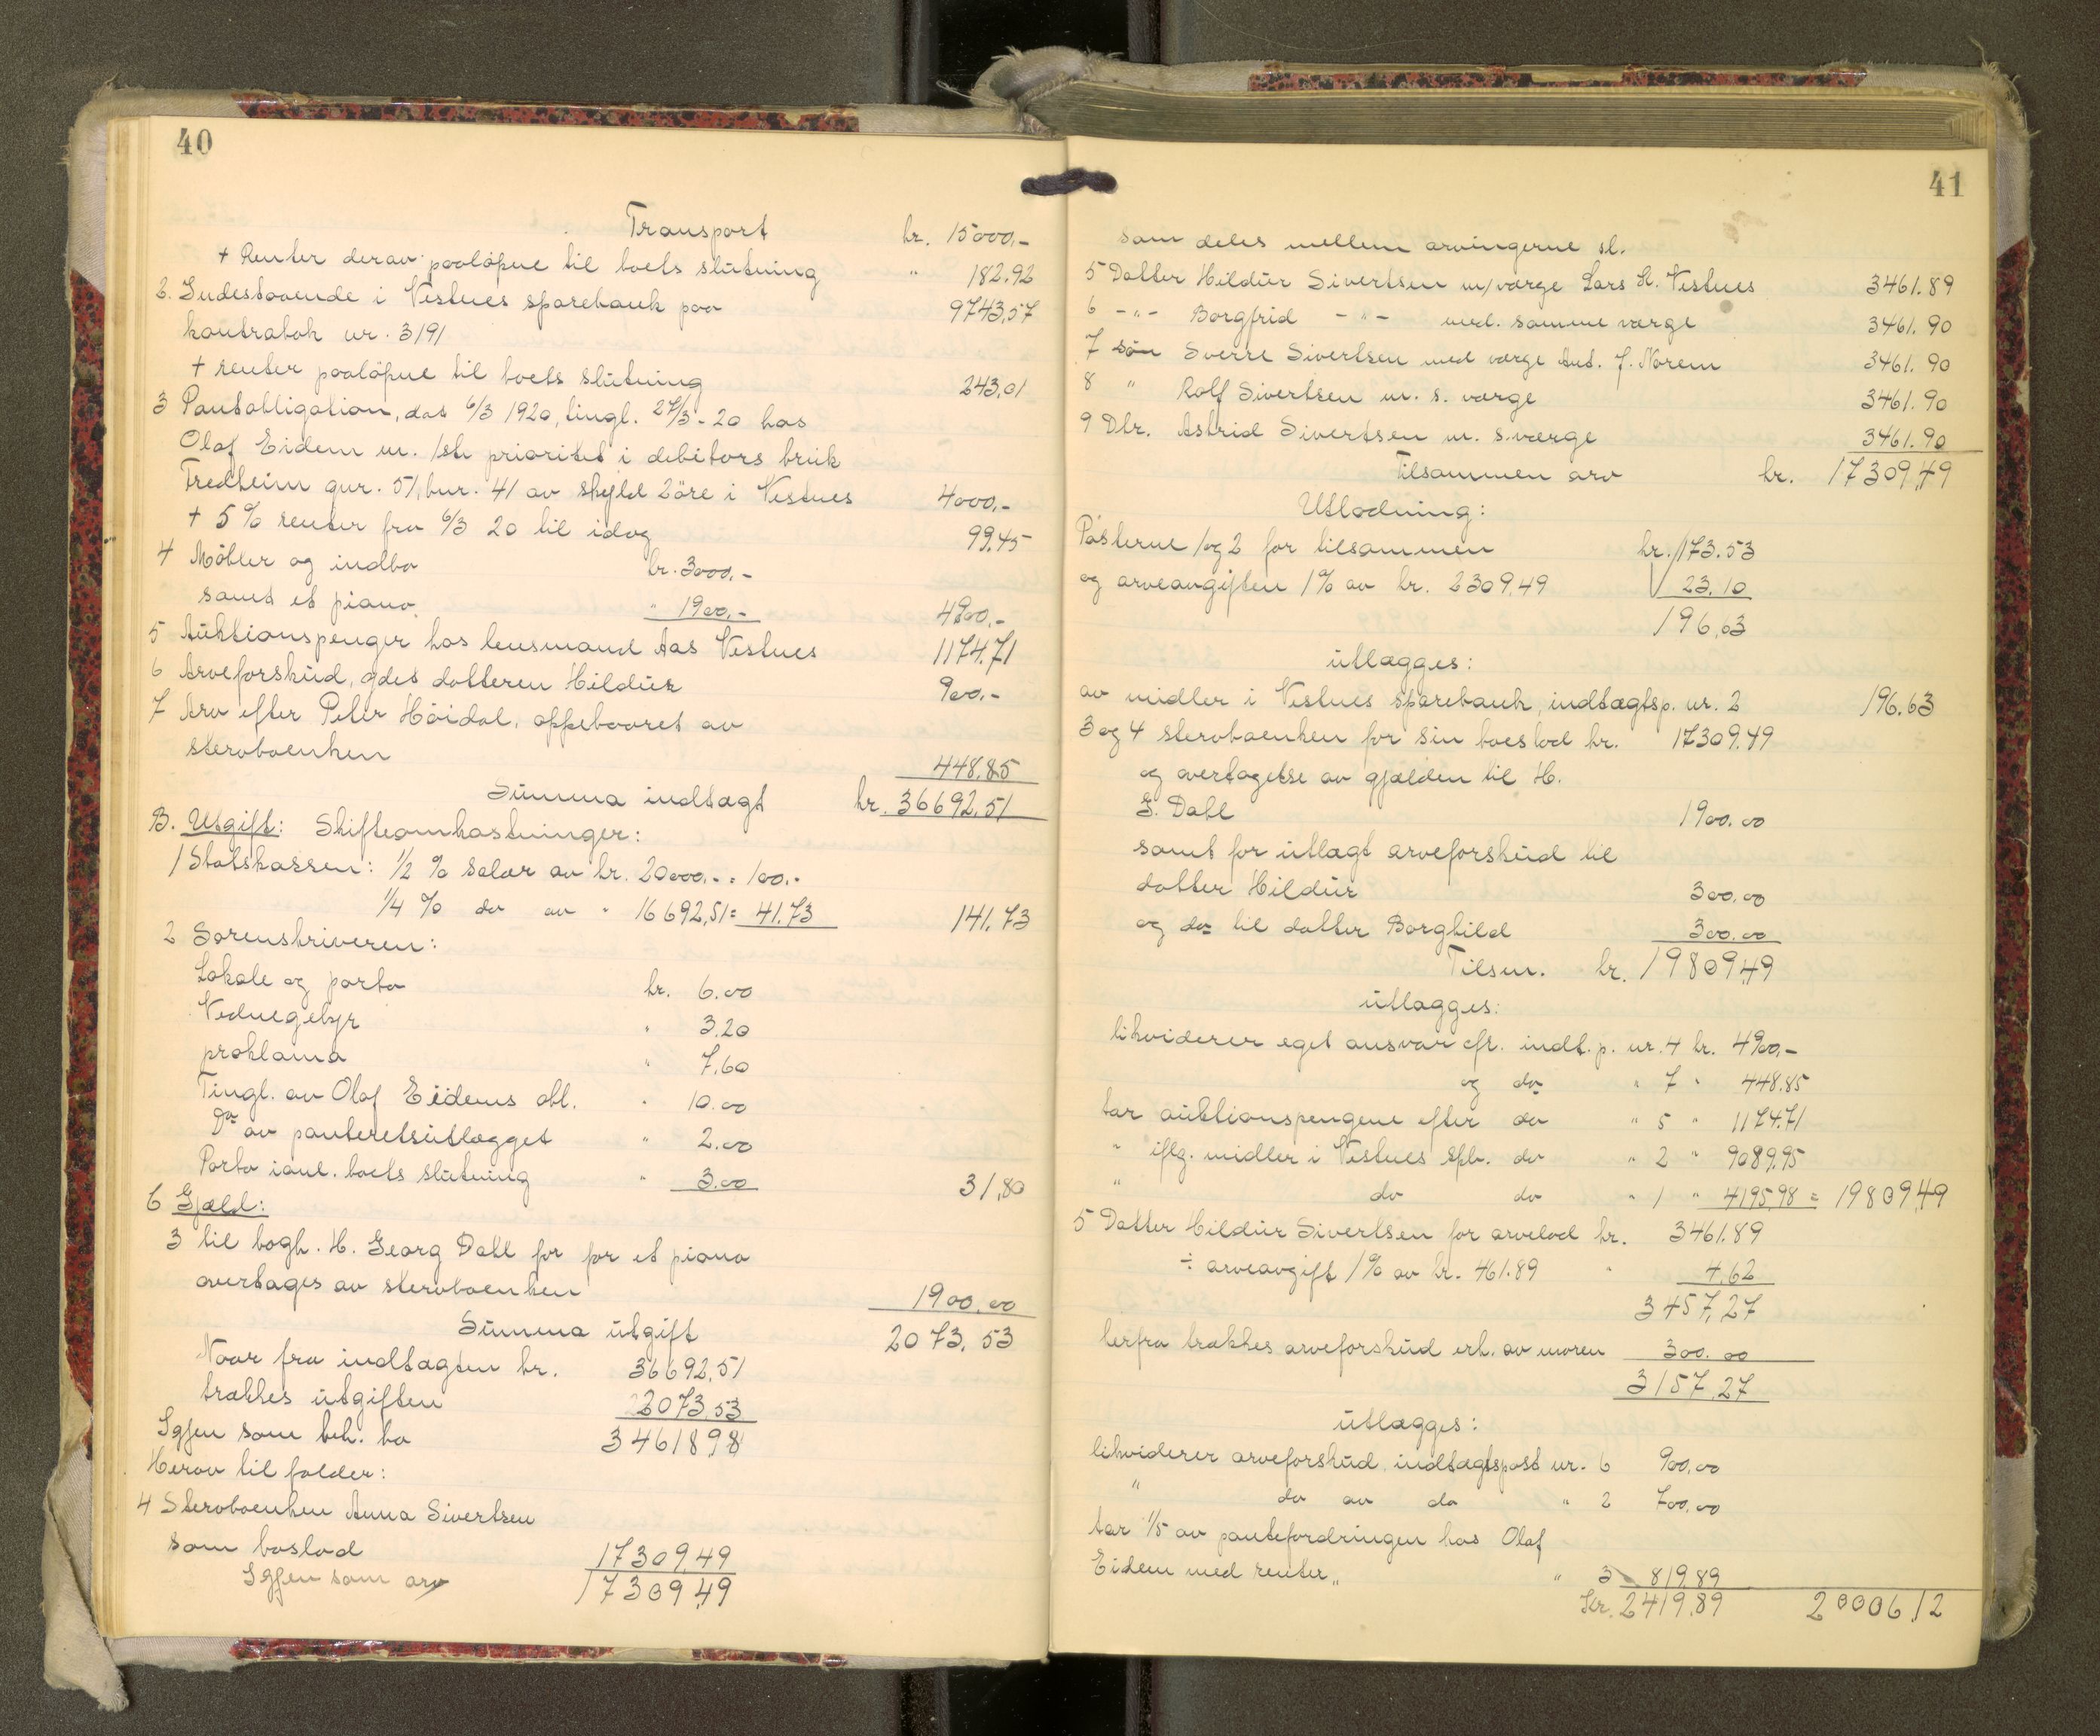 40
Transport kr. 15000.-
+ Renter derav paaløpne til boets slutning " 182.92
2. Indestaaende i Vestnes sparebank paa 9743,57
kontrabok nr. 3191
+ renter paaløpne til boets slutning 243,01
3 Pantobligation, dat 6/3 1920, tingl. 27/3 - 20 hos
Olaf Eidem m. 1ste prioritet i debitors bruk
Fredheim gnr. 51, bnr. 41 av skyld 2 øre i Vestnes 4000,-
+ 5% renter fra 6/3 20 til idag 99.45
4 Møbler og indbo kr. 3000.-
samt et piano. " 1900.- 4900.-
5 Auktionspenger hos lensmand Aas Vestnes 1174.71
6 Arveforskud, gdet datteren Hildur 900.-
7 Arv efter Peter Høidal, oppebaaret av
stervboenken 448.85
Summa indtægt kr. 36692.51
B. Utgift: Skifteomkostninger:
1 Statskassen: 1/2 % salær av kr. 20000.- = 100.-
1/4 % do av " 16692,51 = 41.73 141.73
2 Sorenskriveren:
Lokale og porto kr. 6.00
Vidnegebyr " 3.20
proklama " 7.60
Tingl. av Olaf Eidems obl. " 10.00
Do av panteretsutlægget " 2.00
Porto ianl. boets slutning " 3.00 31,80
C Gjæld:
3 til bogh. H. Georg Dahl for for et piano
overtages av stervboenken 1900.00
Summa utgift 2073.53
Naar fra indtægten kr. 36692,51
trækkes utgiften 2073,53
Igjen som beh. bo 34618,98
Herav tilfalder:
4 Stervboenken Anna Sivertsen
som boslod 17309,49
Igjen som arv 17309,49
41
som deles mellem arvingerne sl.
5 Datter Hildur Sivertsen m/værge Lars H. Vestnes 3461.89
6 -"- Borgfrid -"- med. samme værge 3461.90
7 søn Sverre Sivertsen med værge Ant. J. Norem 3461.90
8 " Rolf Sivertsen m. s. værge 3461.90
9 Dtr. Astrid Sivertsen m. s. værge 3461.90
Tilsammen arv kr. 17309,49
Utlodning:
Posterne 1 og 2 for tilsammen kr. 173.53
og arveavgiften 1% av kr. 2309.49 23.10
196,63
utlægges:
av midler i Vestnes sparebank, indtægtsp. nr. 2 196.63
3 og 4 stervboenken for sin boeslod kr. 17309.49
og overtagelse av gjælden til H.
G. Dahl 1900.00
samt for utlagt arveforskud til
datter Hildur 300.00
og do til datter Borghild 300.00
Tilsm. kr. 19809,49
utlægges:
likviderer eget ansvar eft. indt. p. nr. 4 kr. 4900.-
og do " 7 " 448.85
tar auktionspengene efter do " 5 " 1174.71
" iflg. midler i Vestnes spb. do " 2 " 9089.95
" do do " 1 " 4195.98 = 19809,49
5 Datter Hildur Sivertsen for arvelod kr. 3461.89
÷ arveavgift 1% av kr. 461.89 " 4.62
3457,27
herfra trækkes arveforskud erh. av moren 300.00
3157,27
utlægges:
likviderer arveforskud indtægtspost nr. 6 900,00
" do av do " 2 700,00
tar 1/5 av pantefordringen hos Olaf
Eidem med renter " " 3 819.89
Kr. 2419.89 20006,12